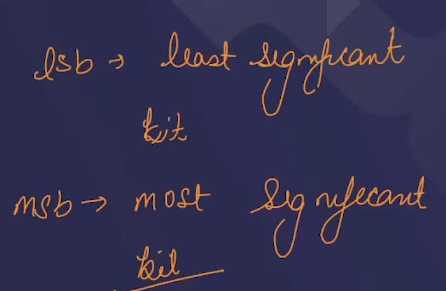 lsb → least significant
bit
msb → most significant
bit